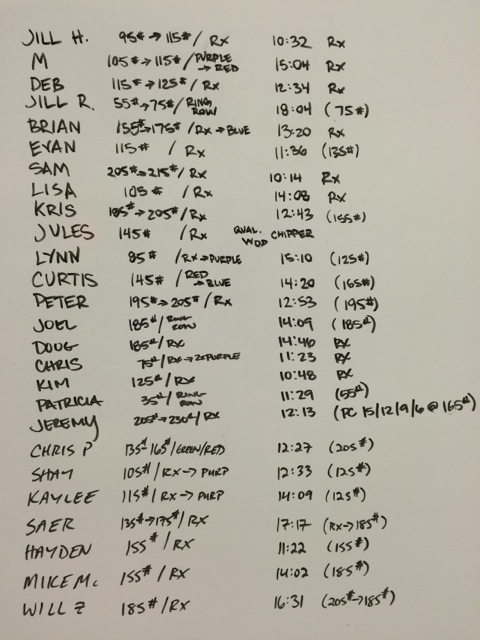 JILL H. 95#→115#/RX 10:32 RX
M 105#→115#/PURPLE→RED 15:04 RX
DEB 115#→125#/RX 12:34 RX
JILL R. 55#→75#/RING ROW 18:04 (75#)
BRIAN 155#→175#/RX→BLUE 13:20 RX
EVAN 115#/RX 11:36 (135#)
SAM 205#→215#/RX 10:14 RX
LISA 105#/RX 14:08 RX
KRIS 185#→205#/RX 12:43 (155#)
JULES 145#/RX QUAL. WOD CHIPPER
LYNN 85#/RX→PURPLE 15:10 (125#)
CURTIS 145#/RED→BLUE 14:20 (165#)
PETER 195#→205#/RX 12:53 (195#)
JOEL 185#/RING ROW 14:09 (185#)
DOUG 185#/RX 14:46 RX
CHRIS 75#/RX→2xPURPLE 11:23 RX
KIM 125#/RX 10:48 RX
PATRICIA 35#/RING ROW 11:29 (55#)
JEREMY 205#→230#/RX 12:13 (PC 15/12/9/6 @ 165#)
CHRIS P 135#-165#/GREEN/RED 12:27 (205#)
SHAY 105#/RX→PURP 12:33 (125#)
KAYLEE 115#/RX→PURP 14:09 (125#)
SAER 135#→175#/RX 17:17 (RX→185#)
HAYDEN 155#/RX 11:22 (155#)
MIKE Mc. 155#/RX 14:02 (185#)
WILL Z 185#/RX 16:31 (205#→185#)